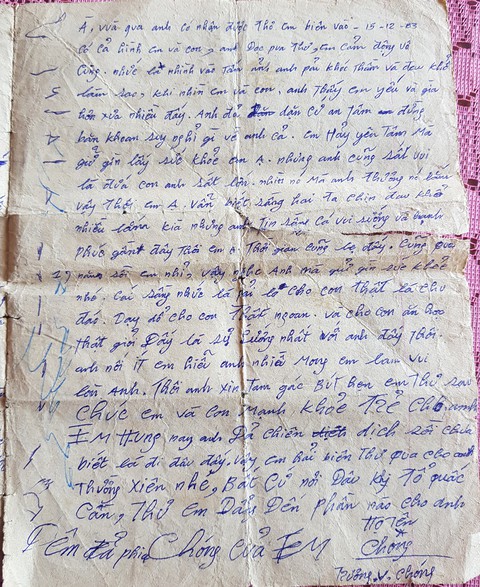 À, vừa qua anh có nhận được Thơ em biên vào - 15-12-03
Có cả hình em và con, anh Đọc qua Thơ, em Cảm động vô
Cùng. nhức là nhình vào Tấm ảnh anh phải khóc Thầm và đau khổ
làm sao, khi nhìn em và con. anh Thấy em yếu và già
hơn xưa nhiều đấy. Anh đã dặn dò cứ an Tâm đừng
băn khoan suy nghỉ gì về anh cả. em Hảy yên Tâm Mà
giử gìn lấy sức khoẻ em À. nhưng anh cũng sất vui
là đứa con anh sất lớn. nhìn nó Mà anh Thương nó lắm
vậy Thôi em À. Vẫn biết sằng hai Ta chịu đau khổ
nhiều lắm kia nhưng anh Tin sằng Có vui sướng và hạnh
phúc gần đây Thôi em ạ Thời gian cũng lẹ đấy. Cũng qua
năm sồi em nhỉ, vậy nghe Anh mà giử gìn sức khoẻ
nhé. Cái sằng nhức là phải lo Cho con Thật là chu
đáo. Dạy dổ cho con Thật ngoan. và cho con ăn học
Thật giỏi Đấy là sự sướng nhất với anh đấy Thôi.
anh nói ÍT em hiểu anh nhiều Mong em làm vui
lòn Anh. Thôi anh Xin Tạm gác BÚT hẹn em Thư sau
Chúc em và Con Mạnh khỏe TÊ Cho anh
EM Hưng nay anh Đả chiến dịch sồi chưa
biết là đi đâu đấy, vậy, em hải biên Thư qua cho anh
Thường Xiên nhé, Bất Cứ nơi Đâu khi Tổ quốc
Cần, Thư em Đều Đến phần nào cho anh
Họ Tên
Chồng
Chồng của EM
Trương. V. Chóng